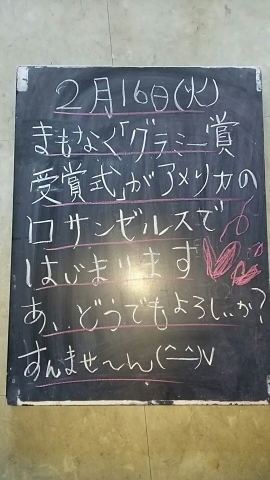 2月16日(火)
まもなく「グラミー賞
受賞式」がアメリカの
ロサンゼルスで
はじまります
あ、どうでもよろしいか?
すんませ〜ん(^ー^)v